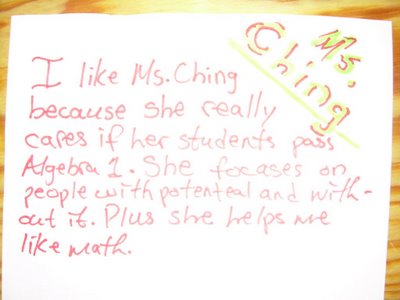 Ms.
Ching
I like Ms. Ching
because she really
cares if her students pass
Algebra 1. She focases on
people with potenteal and with-
out it. Plus she helps me
like math.